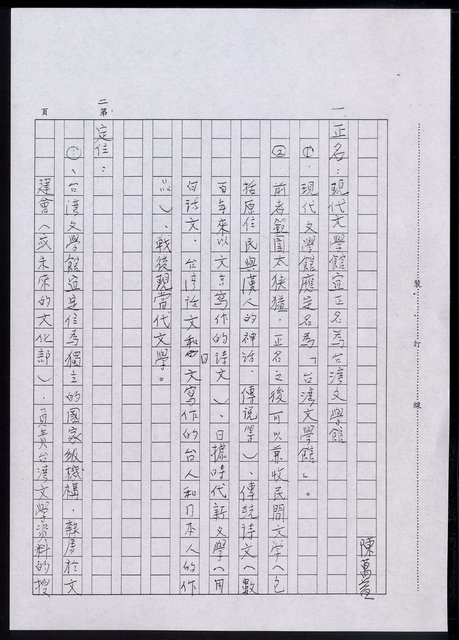 陳萬益
一、正名：現代文學館宜正名為台灣文學館
①、現代文學館應定名為「台灣文學館」。
②、前者範圍太狹獈，正名之後可以兼收民間文學（包
括原住民與漢人的神話、傳說等）、傳統詩文（數
百年來以文言寫作的詩文）、日據時代新文學（用
白話文、台灣話文和日文寫作的台人和日本人的作
品）、戰後現當代文學。
二、定位：
①、台灣文學館宜定位為獨立的國家級機構，隸屬於文
建會（或未來的文化部），負責台灣文學資料的搜
裝 訂 線
第 頁